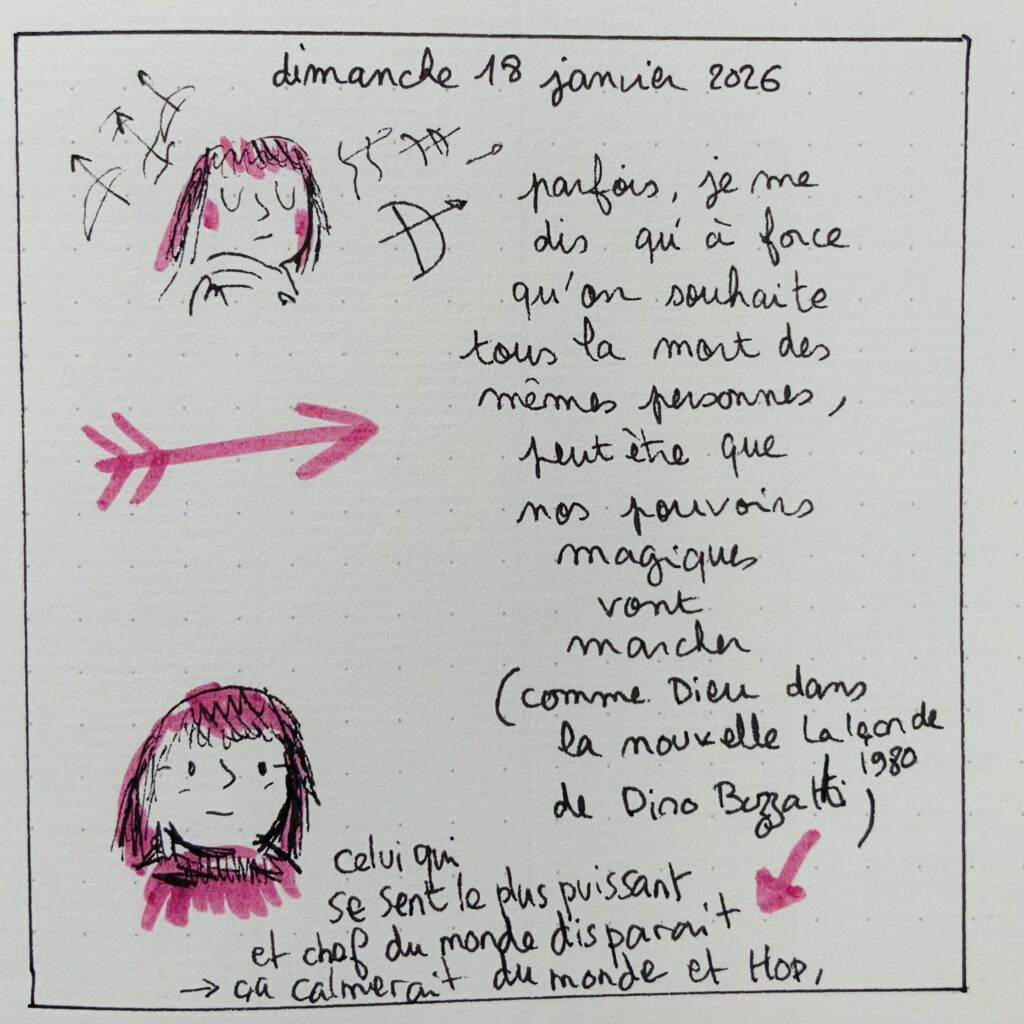 dimanche 18 janvier 2026
parfois, je me
dis qu'à force
qu'on souhaite
tous la mort des
mêmes personnes,
peut être que
nos pouvoirs
magiques
vont
marcher
(comme Dieu dans
la nouvelle La leçon de
1980
de Dino Buzzatti,)
celui qui
se sent le plus puissant
et chef du monde disparait
→ ça calmerait du monde et HOP,